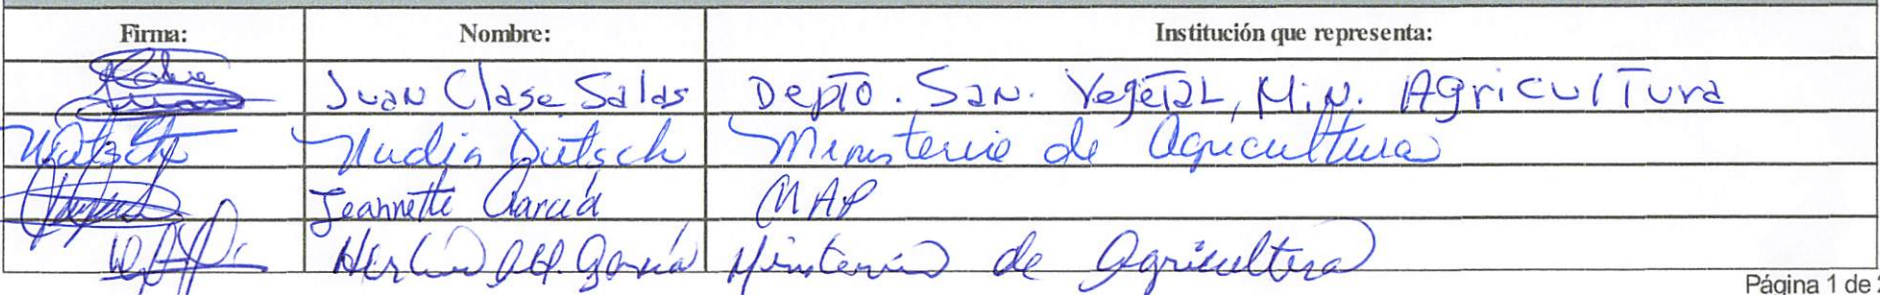 Firma: Nombre: Institución que representa:
Juan Clase Salas Depto. San. Vegetal, Min. Agricultura
Ministerio de Agricultura
Jeannette García MAP
García Ministerio de Agricultura
Página 1 de 2